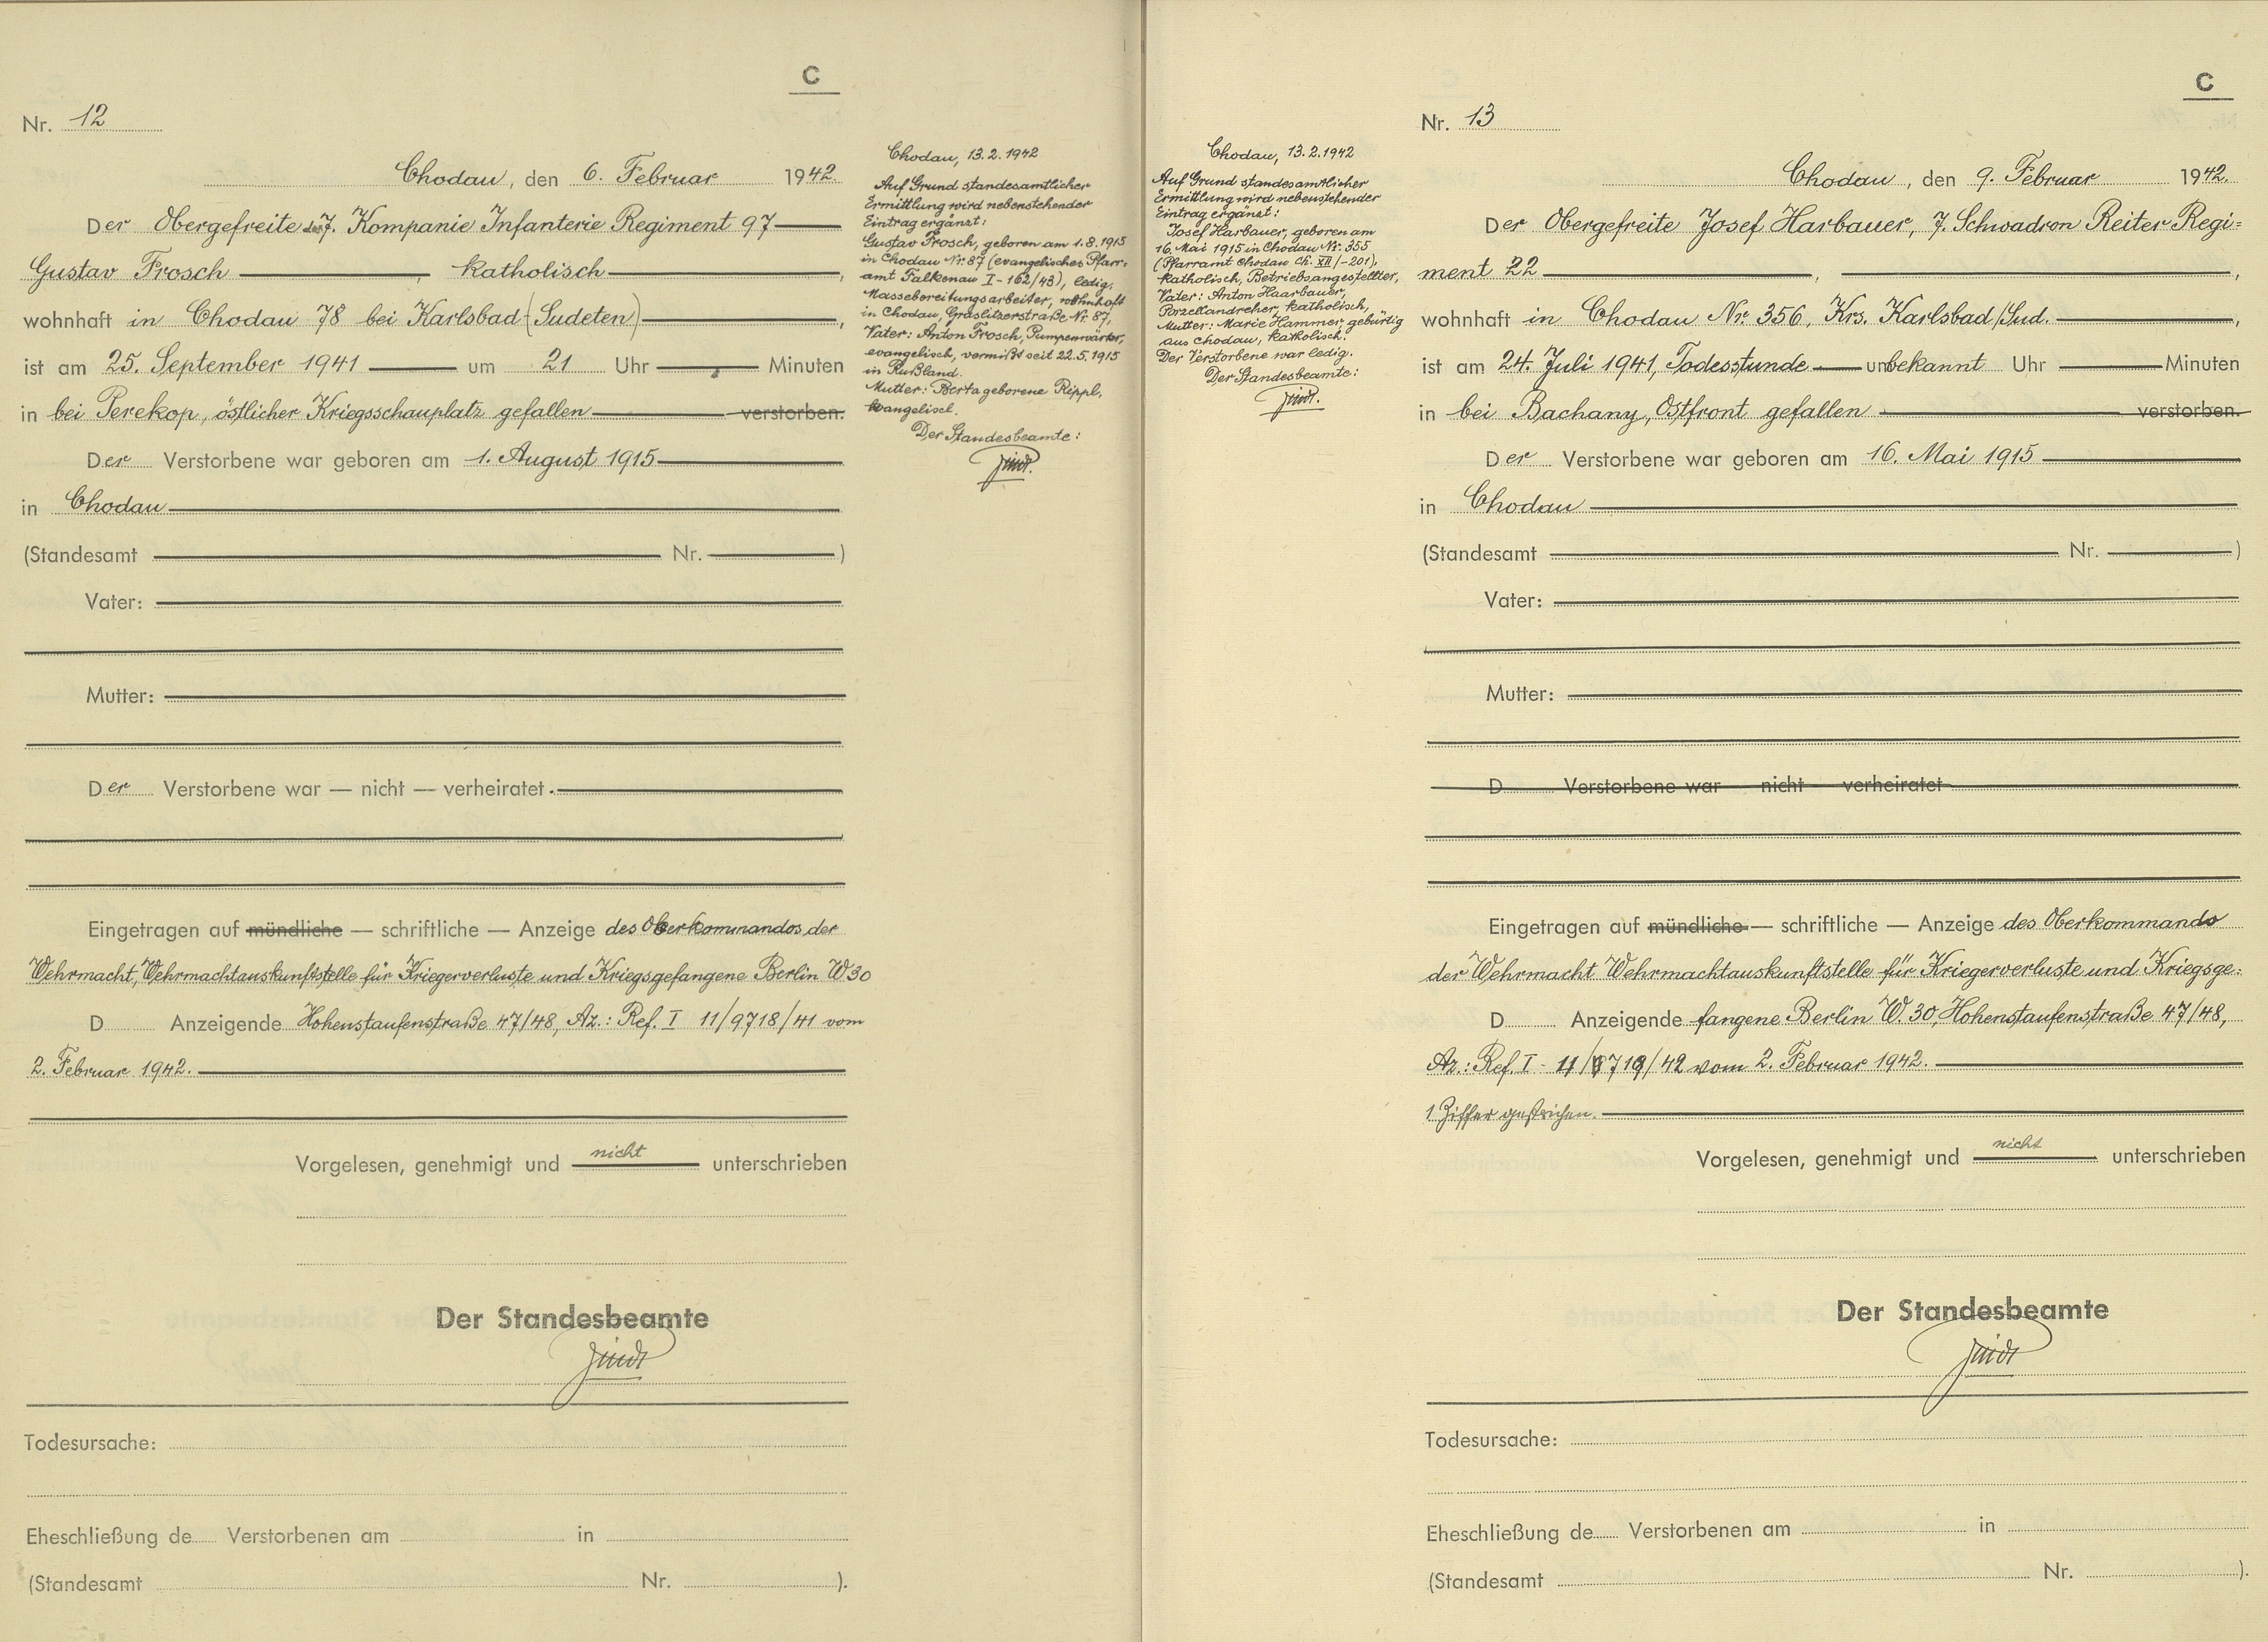 C
Nr. 12
Chodau, den 6. Februar 1942.
Der Obergefreite der 7. Kompanie Infanterie Regiment 97
Gustav Frosch, katholisch,
wohnhaft in Chodau 78 bei Karlsbad (Sudeten),
ist am 25. September 1941 um 21 Uhr Minuten
in bei Perekop, östlicher Kriegsschauplatz gefallen verstorben.
Der Verstorbene war geboren am 1. August 1915
in Chodau
(Standesamt Nr. )
Vater:
Mutter:
Der Verstorbene war — nicht — verheiratet.
Eingetragen auf mündliche — schriftliche — Anzeige des Oberkommandos der
Wehrmacht, Wehrmachtauskunftstelle für Kriegerverluste und Kriegsgefangene Berlin W 30
D Anzeigende Hohenstaufenstraße 47/48, Az.: Ref. I 11/9718/41 vom
2. Februar 1942.
Vorgelesen, genehmigt und nicht unterschrieben
Der Standesbeamte
Todesursache:
Eheschließung de Verstorbenen am in
(Standesamt Nr. ).
Chodau, 13.2.1942
Auf Grund standesamtlicher
Ermittlung wird nebenstehender
Eintrag ergänzt:
Gustav Frosch, geboren am 1.8.1915
in Chodau Nr. 87 (evangelisches Pfarr-
amt Falkenau I-162/43), ledig,
Massebereitungsarbeiter, wohnhaft
in Chodau, Graslitzerstraße Nr. 87,
Vater: Anton Frosch, Pumpenwärter,
evangelisch, vermißt seit 22.5.1915
in Rußland.
Mutter: Berta geborene Rippl,
evangelisch.
Der Standesbeamte:
Chodau, 13.2.1942
Auf Grund standesamtlicher
Ermittlung wird nebenstehender
Eintrag ergänzt:
Josef Harbauer, geboren am
16. Mai 1915 in Chodau Nr. 355
(Pfarramt Chodau Ch. XII/-201),
katholisch, Betriebsangestellter,
Vater: Anton Haarbauer,
Porzellandreher, katholisch,
Mutter: Marie Hammer, gebürtig
aus Chodau, katholisch.
Der Verstorbene war ledig.
Der Standesbeamte:
C
Nr. 13
Chodau, den 9. Februar 1942.
Der Obergefreite Josef Harbauer, 7. Schwadron Reiter Regi=
ment 22, ,
wohnhaft in Chodau Nr. 356, Krs. Karlsbad/Sud.,
ist am 24. Juli 1941, Todesstunde unbekannt Uhr Minuten
in bei Bachany, Ostfront gefallen verstorben.
Der Verstorbene war geboren am 16. Mai 1915
in Chodau
(Standesamt Nr. )
Vater:
Mutter:
D Verstorbene war nicht verheiratet
Eingetragen auf mündliche — schriftliche — Anzeige des Oberkommando
der Wehrmacht Wehrmachtauskunftstelle für Kriegerverluste und Kriegsge=
D Anzeigende fangene Berlin W. 30, Hohenstaufenstraße 47/48,
Az.: Ref. I - 11/9719/42 vom 2. Februar 1942.
1 Ziffer gestrichen.
Vorgelesen, genehmigt und nicht unterschrieben
Der Standesbeamte
Todesursache:
Eheschließung de Verstorbenen am in
(Standesamt Nr. ).